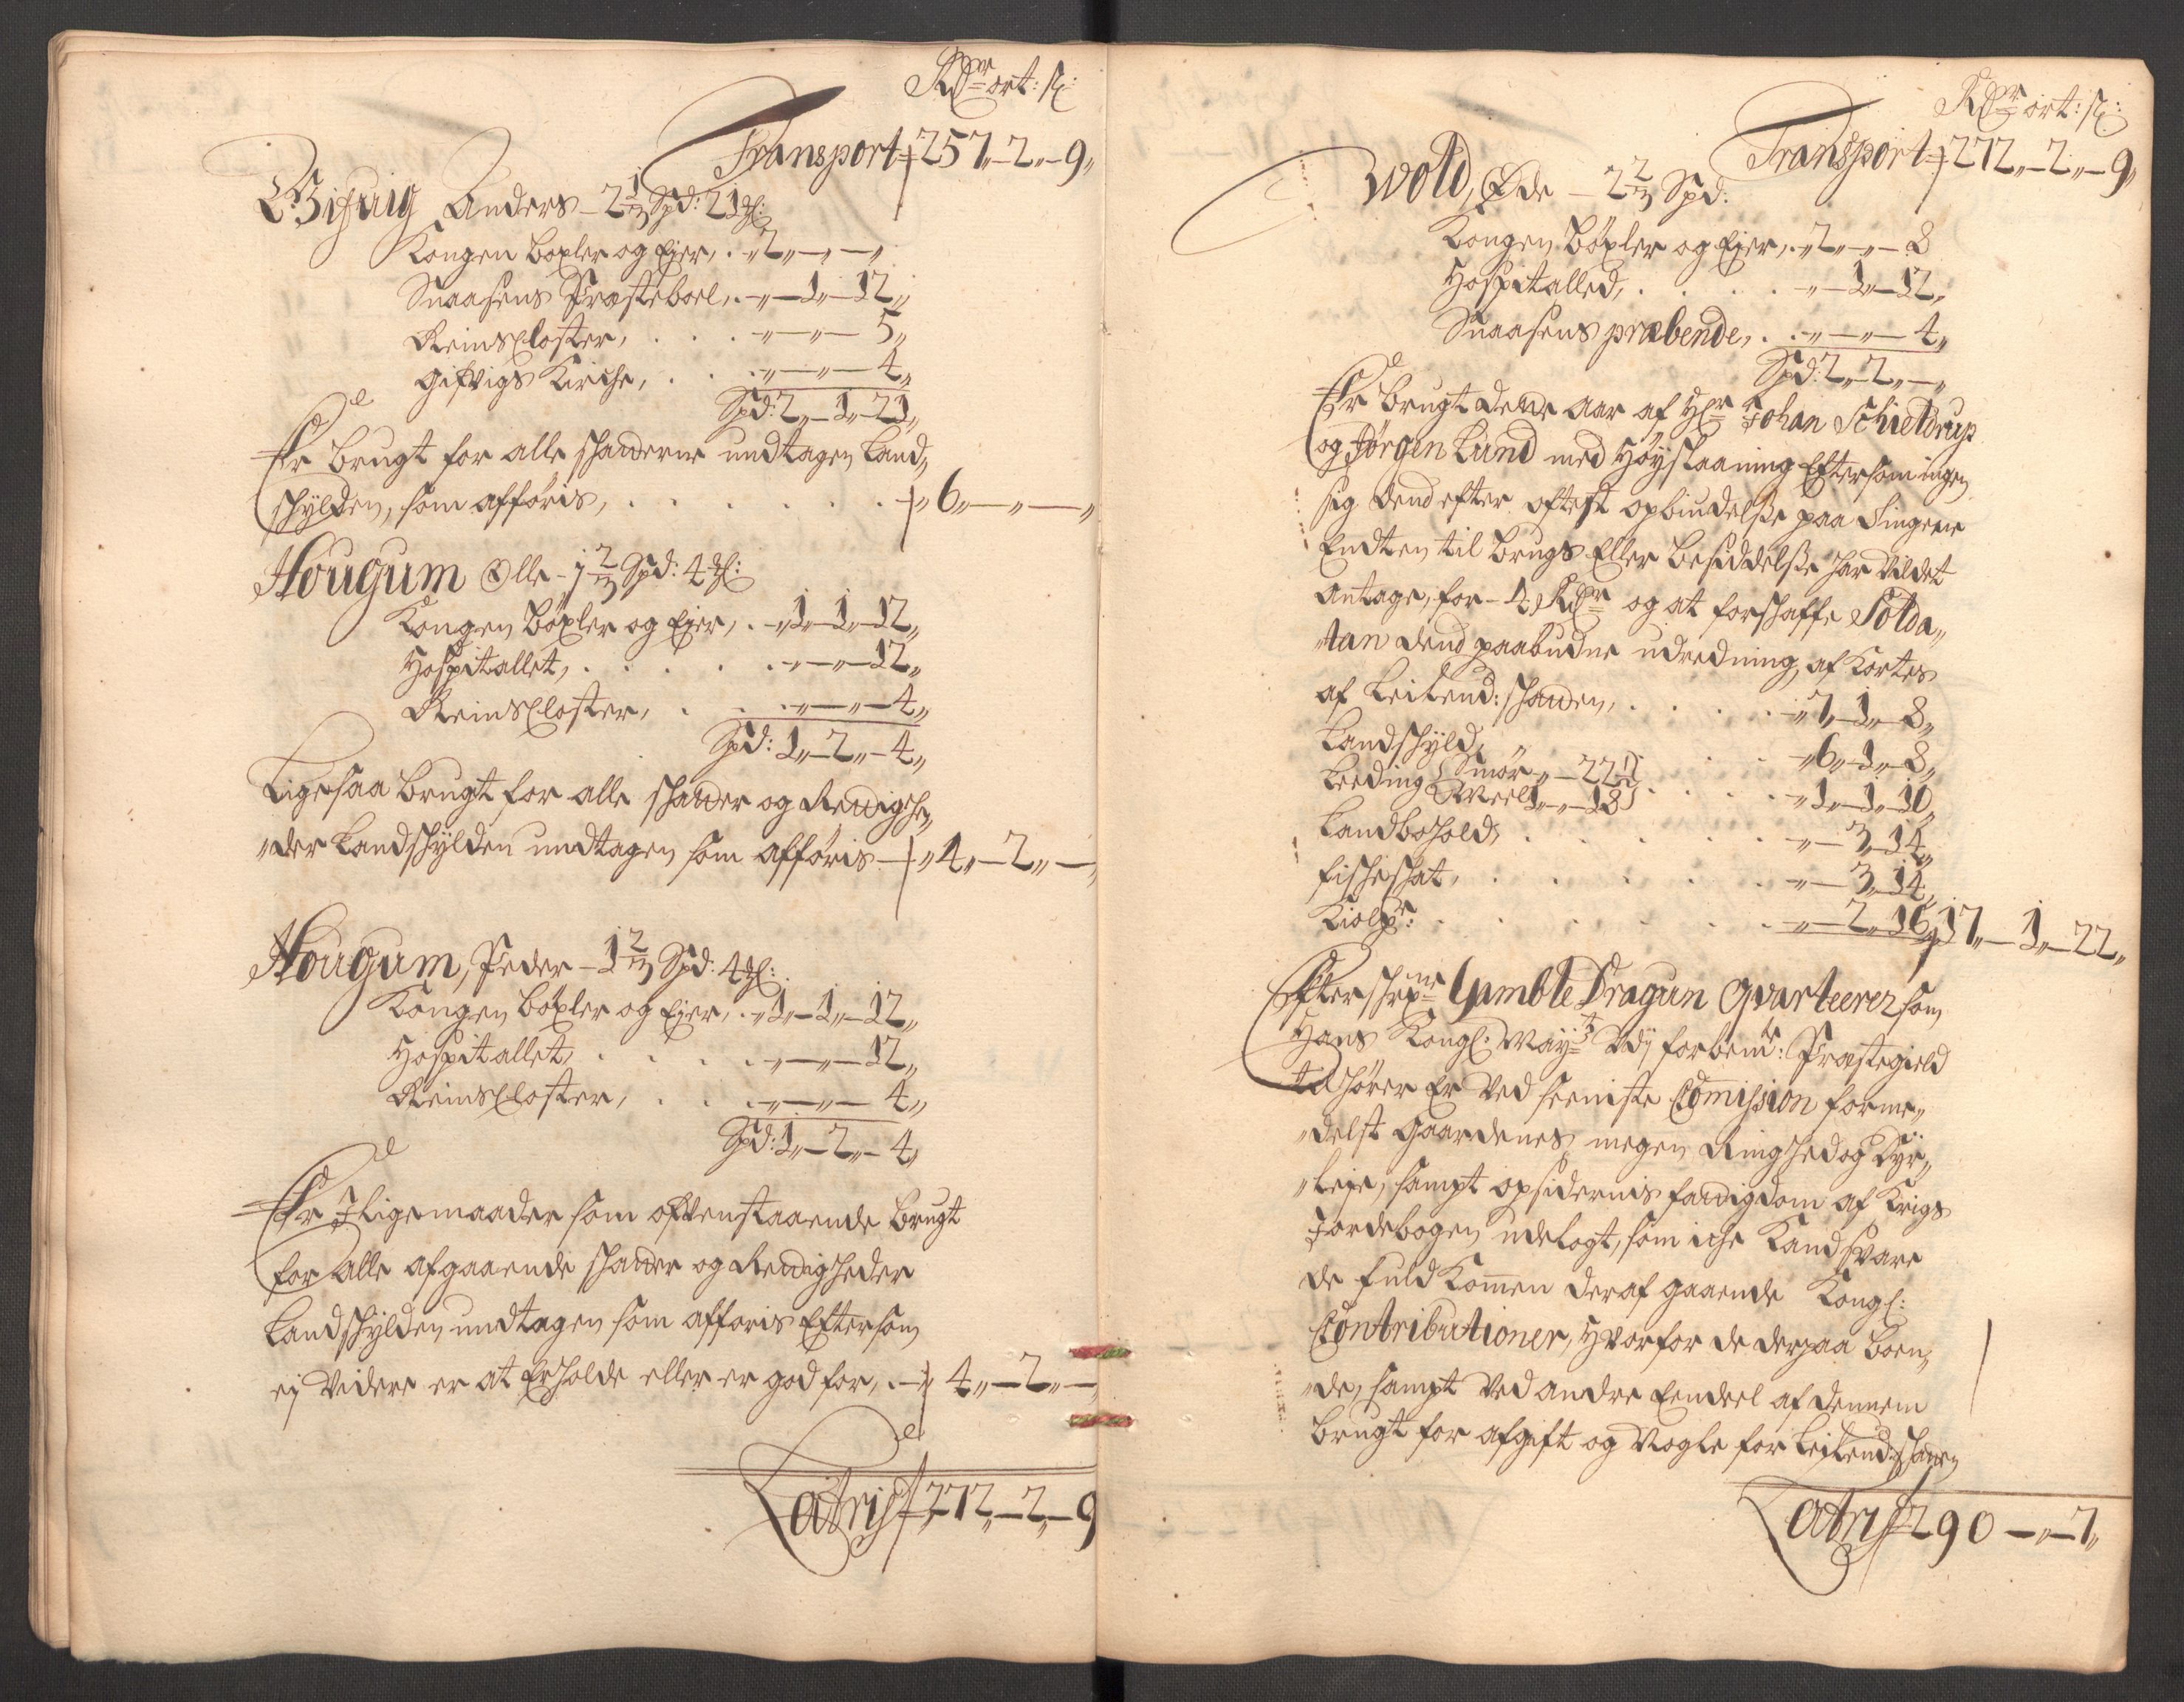 Rdr ort: s:
Transport 257 - 2 - 9
Gifuig Anders - 2 1/3 Spd: 21 ℔:
Kongen boxler og Ejer, . 2 - -
Snaasens Præsteboel, . - 1 - 12
Reins Closter, . . . - - 5
Gifvigs Kirche, . . . - - 4
Spd: 2 - 1 - 21
Er brugt for alle schatterne undtagen Land-
schylden, som afføris, . . . . . . 6 - -
Hougum Olle - 1 2/3 Spd: 4 ℔:
Kongen böxler og Ejer, . 1 - 1 - 12
Hospitallet, . . . . . - - 12
Reins Closter, . . . - - 4
Spd: 1 - 2 - 4
Ligesaa brugt for alle schatter og Rettighe-
der Landschylden undtagen som afføris - 4 - 2 -
Hougum, Peder - 1 2/3 Spd: 4 ℔:
Kongen böxler og Ejer, . 1 - 1 - 12
Hospitallet, . . . . - - 12
Reins Closter, . . . - - 4
Spd: 1 - 2 - 4
Er J ligemaader som ofvenstaaende brugt
for alle afgaaende schatter og Rettigheder
Landschylden undtagen som afføris Eftersom
ej videre er at Erholde eller er god for, . 4 - 2 -
Latris 272 - 2 - 9
Rdr ort: s:
Transport 272 - 2 - 9
Wold, Øde - 2 2/3 Spd:
Kongen böxler og Ejer, . 2 - - 8
Hospitalled, . . . . - 1 - 12
Snaasens præbende, . . - - 4
Spd: 2 - 2 -
Er brugt dette aar af Hr Johan Schieldrup
og Jørgen Lund med Høyslaaning Eftersom ingen
sig dend efter oftest opbiudelsse paa Tingene
Endten til brugs Eller besiddelsse har vildet
antage, for - 4 Rdr og at forschaffe Solda-
ten dend paabudne udredning, af Kortes
af Leilend: schatten, . . . . 7 - 1 - 8
Landschyld, . . 6 - 1 - 8
Leeding Smør - - 22 1/2
Meel 1 - - 18 . . . . 1 - 1 - 10
Landbohold, . . . . . - 3 - 14
fischeschat, . . . . . - 3 - 14
Kiolpr: . . . . . - 2 - 16 17 - 1 - 22
Efterschrefne Gamble Dragun Qvarteerer som
Hans Kongl: Mayt Udj forbemte: Præstegield
tilhører Er Ved seeniste Comission forme-
delst Gaardenes megen Ringhed og Dyr-
leje, sampt opsidernis fattigdom af Krigs
Jordebogen udelagt, som iche Kand svare
de fuldkommen deraf gaaende Kongl:
Contributioner, Hvorfor de derpaa boen-
de, sampt Ved andre Eendeel af dennem
brugt for afgift og Nogle for Leilend: schatten
Latris 290 - - 7